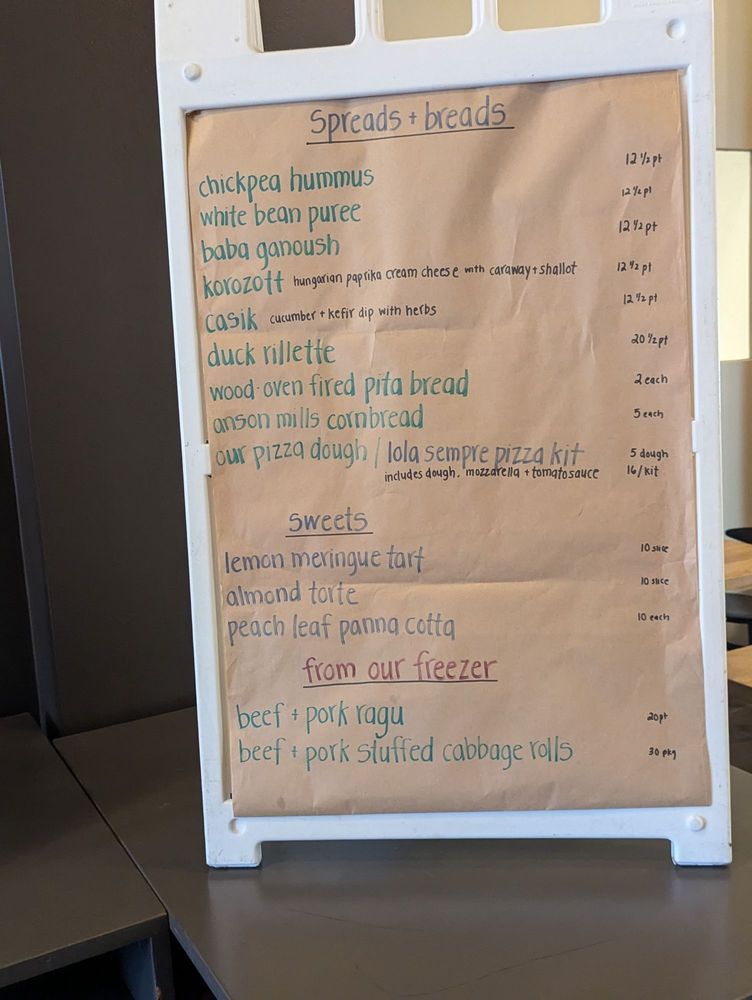 Spreads + breads
chickpea hummus 12 1/2 pt
white bean puree 12 1/2 pt
baba ganoush 12 1/2 pt
korozott hungarian paprika cream cheese with caraway + shallot 12 1/2 pt
casik cucumber + kefir dip with herbs 12 1/2 pt
duck rillette 20 1/2 pt
wood-oven fired pita bread 2 each
anson mills cornbread 5 each
our pizza dough / lola sempre pizza kit 5 dough
includes dough, mozzarella + tomato sauce 16/kit
sweets
lemon meringue tart 10 slice
almond torte 10 slice
peach leaf panna cotta 10 each
from our freezer
beef + pork ragu 20 pt
beef + pork stuffed cabbage rolls 30 pkg